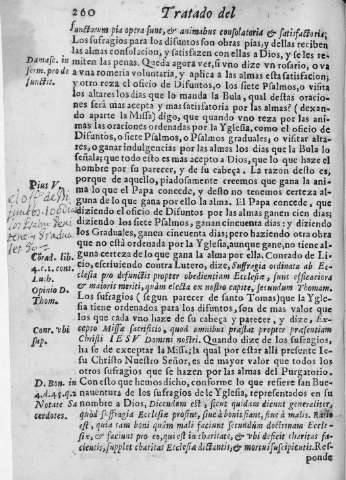 260 Tratado del
functorum pia opera sunt, & animabus consolatoria & satisfactoria;
Los sufragios para los difuntos son obras pias, y dellas reciben
las almas consolacion, y satisfacen con ellas a Dios, y se les re-
Damasc. in
serm. pro de
functis.
miten las penas. Queda agora ver, si vno dize vn rosario, o va
a vna romeria voluntaria, y aplica a las almas esta satisfacion;
y otro reza el oficio de Difuntos, o los siete Psalmos, o visita
los altares los dias que lo manda la Bula, qual destas oracio-
nes serà mas acepta y mas satisfatoria por las almas? (dexan-
do aparte la Missa) digo, que quando vno reza por las ani-
mas las oraciones ordenadas por la Yglesia, como el oficio de
Difuntos, o siete Psalmos, o Psalmos graduales; o visitar alta-
res, o ganar indulgencias por las almas los dias que la Bula lo
señala; que todo esto es mas acepto a Dios, que lo que haze el
hombre por su parecer, y de su cabeça. La razon desto es,
porque de aquello, piadosamente creemos que gana la ani-
Pius V.
ma lo que el Papa concede, y desto no tenemos certeza al-
guna de lo que gana por ello la alma. El Papa concede, que
diziendo el oficio de Difuntos por las almas ganen cien dias;
diziendo los siete Psalmos, ganan cincuenta dias; y diziendo
los Graduales, ganen cincuenta dias; pero haziendo otra obra
que no està ordenada por la Yglesia, aunque gane, no tiene al-
guna certeza de lo que gana la alma por ella. Conrado de Li-
Cõrad. lib.
4.c.1. cont.
Luth.
cio, escriuiendo contra Lutero, dize, Suffragia ordinata ab Ec-
clesia pro defunctis propter obedientiam Ecclesiæ, sunt efficatiora
& maioris meriti, quàm electa ex nostro capite, secundum Thomam.
Opinio D.
Thom.
Los sufragios (segun parecer de santo Tomas) que la Ygle-
sia tiene ordenados por los difuntos, son de mas valor que
los que cada vno haze de su cabeça y parecer, y dize, Ex-
Conr. vbi
sup.
cepto Missæ sacrificio, quod omnibus præstat propter præsentiam
Christi IESV Domini nostri. Quando dize de los sufragios,
ha se de exceptar la Missa; la qual por estar alli presente Ie-
su Christo Nuestro Señor, es de mayor valor que todos los
otros sufragios que se hazen por las almas del Purgatorio.
D. Bon. in
4.d.45.q.2
Con esto que hemos dicho, conforme lo que refiere san Bue-
nauentura de los sufragios de la Yglesia, representados en su
Notare Sa
cerdotes.
nombre a Dios, Dicendum est, sicut quidam dicunt generaliter,
quòd suffragia Ecclesiæ prosint, siue à bonis fiant, siue à malis. Ratio
est, quia tam boni quàm mali faciunt secundùm doctrinam Eccle-
siæ, & faciunt pro eo, qui est in charitate, & vbi deficit charitas fa-
cientis, supplet charitas Ecclesiæ dictantis, & mortui suscipientis. Res-
ponde